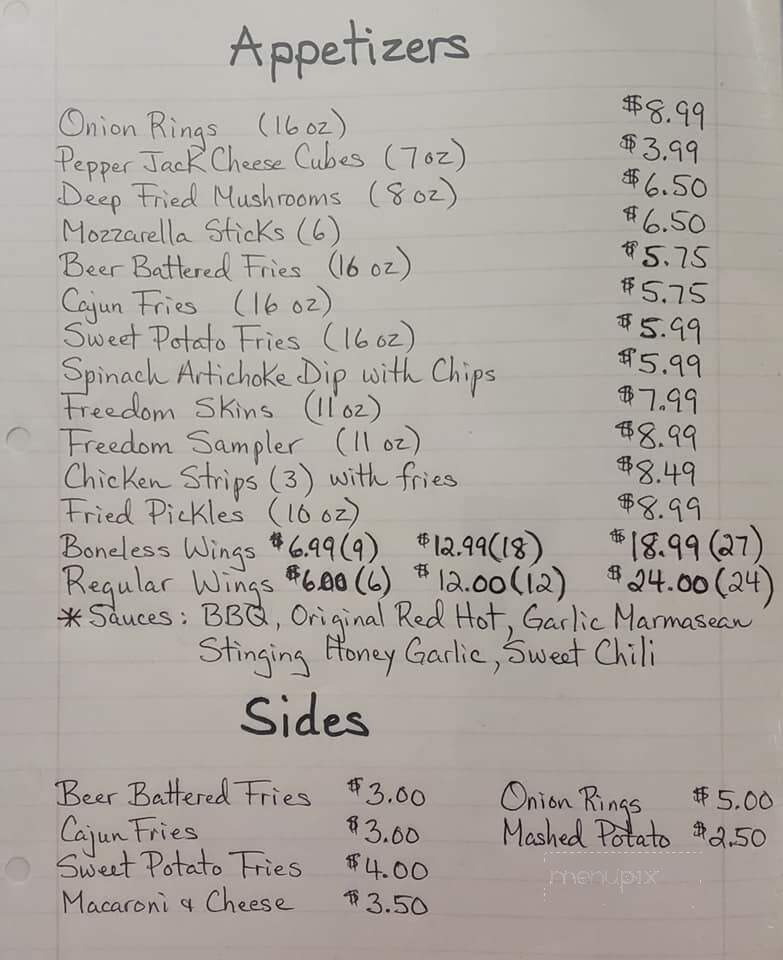 Appetizers
Onion Rings (16 oz) $8.99
Pepper Jack Cheese Cubes (7 oz) $3.99
Deep Fried Mushrooms (8 oz) $6.50
Mozzarella Sticks (6) $6.50
Beer Battered Fries (16 oz) $5.75
Cajun Fries (16 oz) $5.75
Sweet Potato Fries (16 oz) $5.99
Spinach Artichoke Dip with Chips $5.99
Freedom Skins (11 oz) $7.99
Freedom Sampler (11 oz) $8.99
Chicken Strips (3) with fries $8.49
Fried Pickles (10 oz) $8.99
Boneless Wings $6.99(9) $12.99(18) $18.99(27)
Regular Wings $6.00(6) $12.00(12) $24.00(24)
* Sauces: BBQ, Original Red Hot, Garlic Marmasean
Stinging Honey Garlic, Sweet Chili
Sides
Beer Battered Fries $3.00 Onion Rings $5.00
Cajun Fries $3.00 Mashed Potato $2.50
Sweet Potato Fries $4.00
Macaroni & Cheese $3.50
menupix